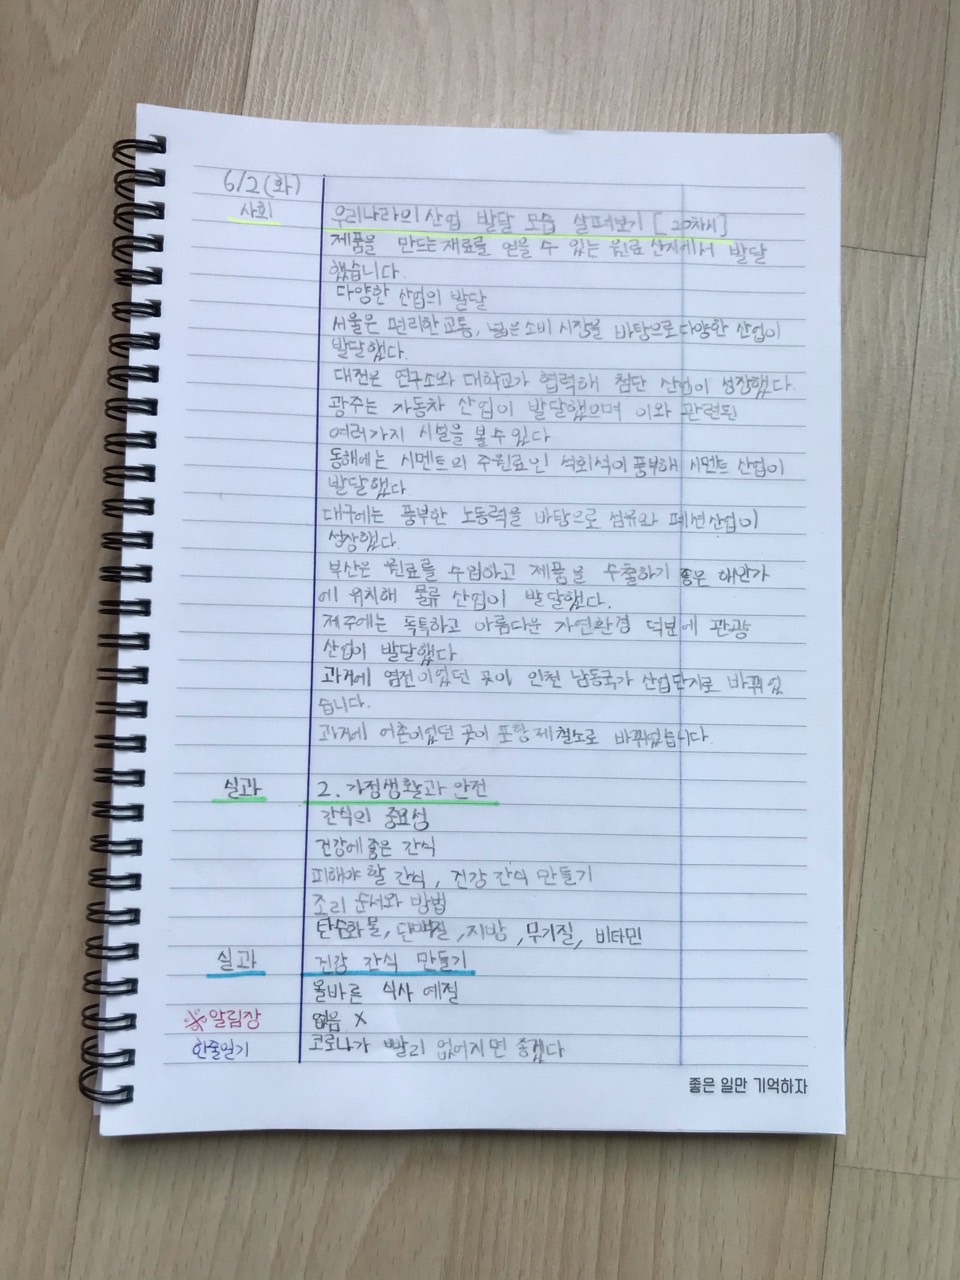 6/2(화)
사회 우리나라의 산업 발달 모습 살펴보기 [20차시]
제품을 만드는 재료를 얻을 수 있는 원료 산지에서 발달
했습니다.
다양한 산업의 발달
서울은 편리한 교통, 넓은 소비 시장을 바탕으로 다양한 산업이
발달했다.
대전은 연구소와 대학교가 협력해 첨단 산업이 성장했다.
광주는 자동차 산업이 발달했으며 이와 관련된
여러가지 시설을 볼 수 있다
동해에는 시멘트의 주원료인 석회석이 풍부해 시멘트 산업이
발달했다.
대구에는 풍부한 노동력을 바탕으로 섬유와 패션산업이
성장했다.
부산은 원료를 수입하고 제품을 수출하기 좋은 해안가
에 위치해 물류 산업이 발달했다.
제주에는 독특하고 아름다운 자연환경 덕분에 관광
산업이 발달했다
과거에 염전이었던 곳이 인천 남동국가 산업단지로 바뀌었
습니다.
과거에 어촌이었던 곳이 포항 제철소로 바뀌었습니다.
실과 2. 가정생활과 안전
간식의 중요성
건강에 좋은 간식
피해야 할 간식, 건강 간식 만들기
조리 순서와 방법
탄수화물, 단백질, 지방, 무기질, 비타민
실과 건강 간식 만들기
올바른 식사 예절
※알림장 없음 X
한줄일기 코로나가 빨리 없어지면 좋겠다
좋은 일만 기억하자